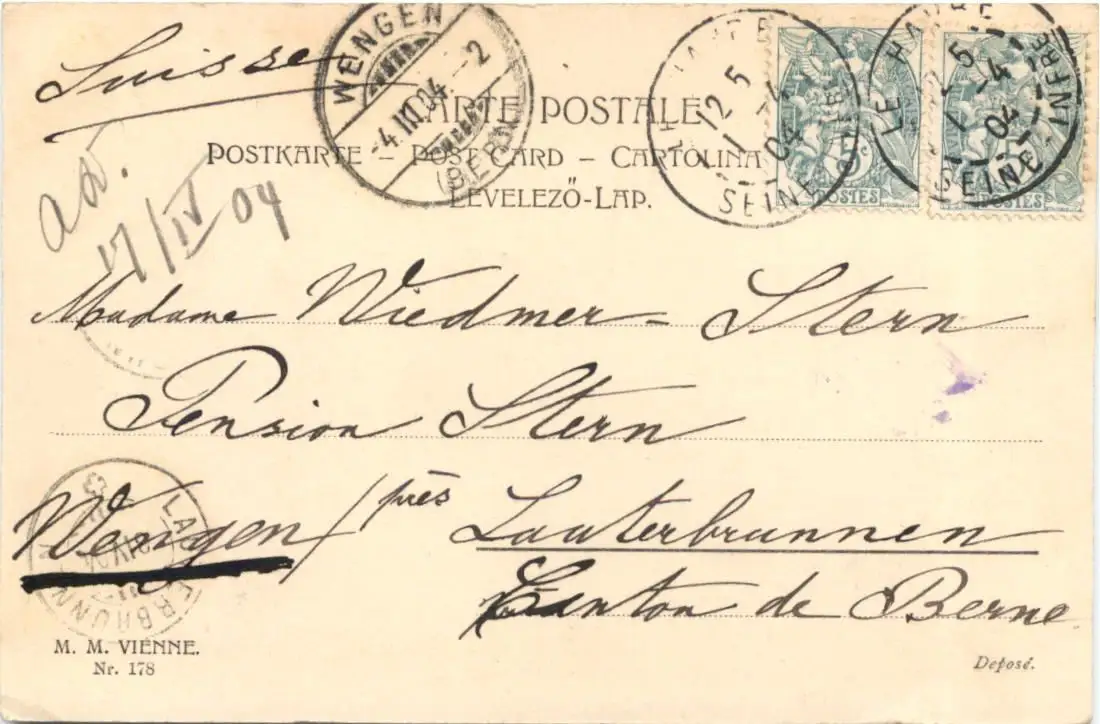 Suisse
WENGEN
(BERN)
LE HAVRE
12 5
1 -4
04
SEINE INFRE
5
POSTES
LE HAVRE
12 5
1 -4
04
SEINE INFRE
5
POSTES
CARTE POSTALE
POSTKARTE – POST CARD – CARTOLINA
LEVELEZŐ-LAP.
IV 04
Madame Wiedmer - Stern
Pension Stern
Wengen / près Lauterbrunnen
Canton de Berne
LAUTERBRUNNEN
M. M. VIENNE.
Nr. 178
Deposé.